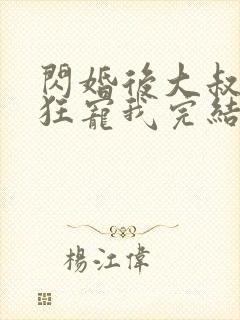 閃婚後大叔
狂寵我完結
楊江偉